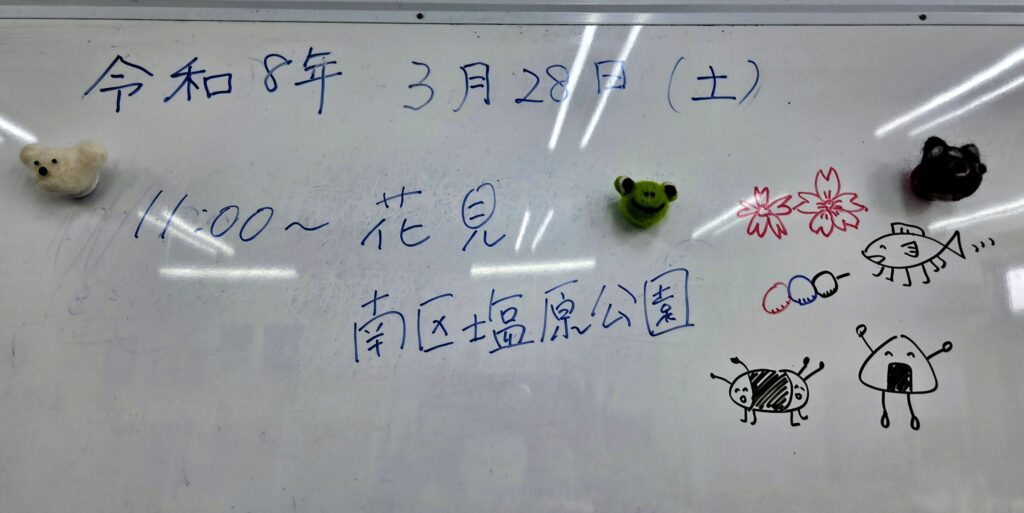 令和8年 3月28日(土)
11:00～ 花見
南区塩原公園